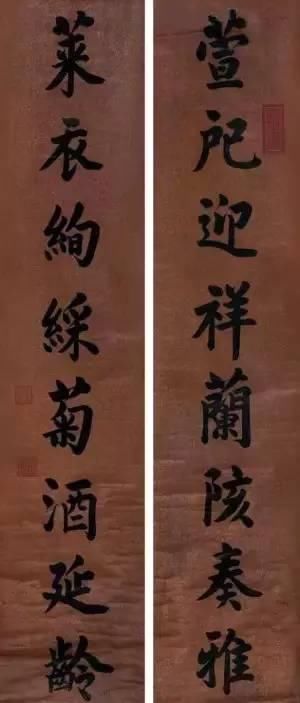 萱戺迎祥蘭陔奏雅
萊衣絢綵菊酒延齡